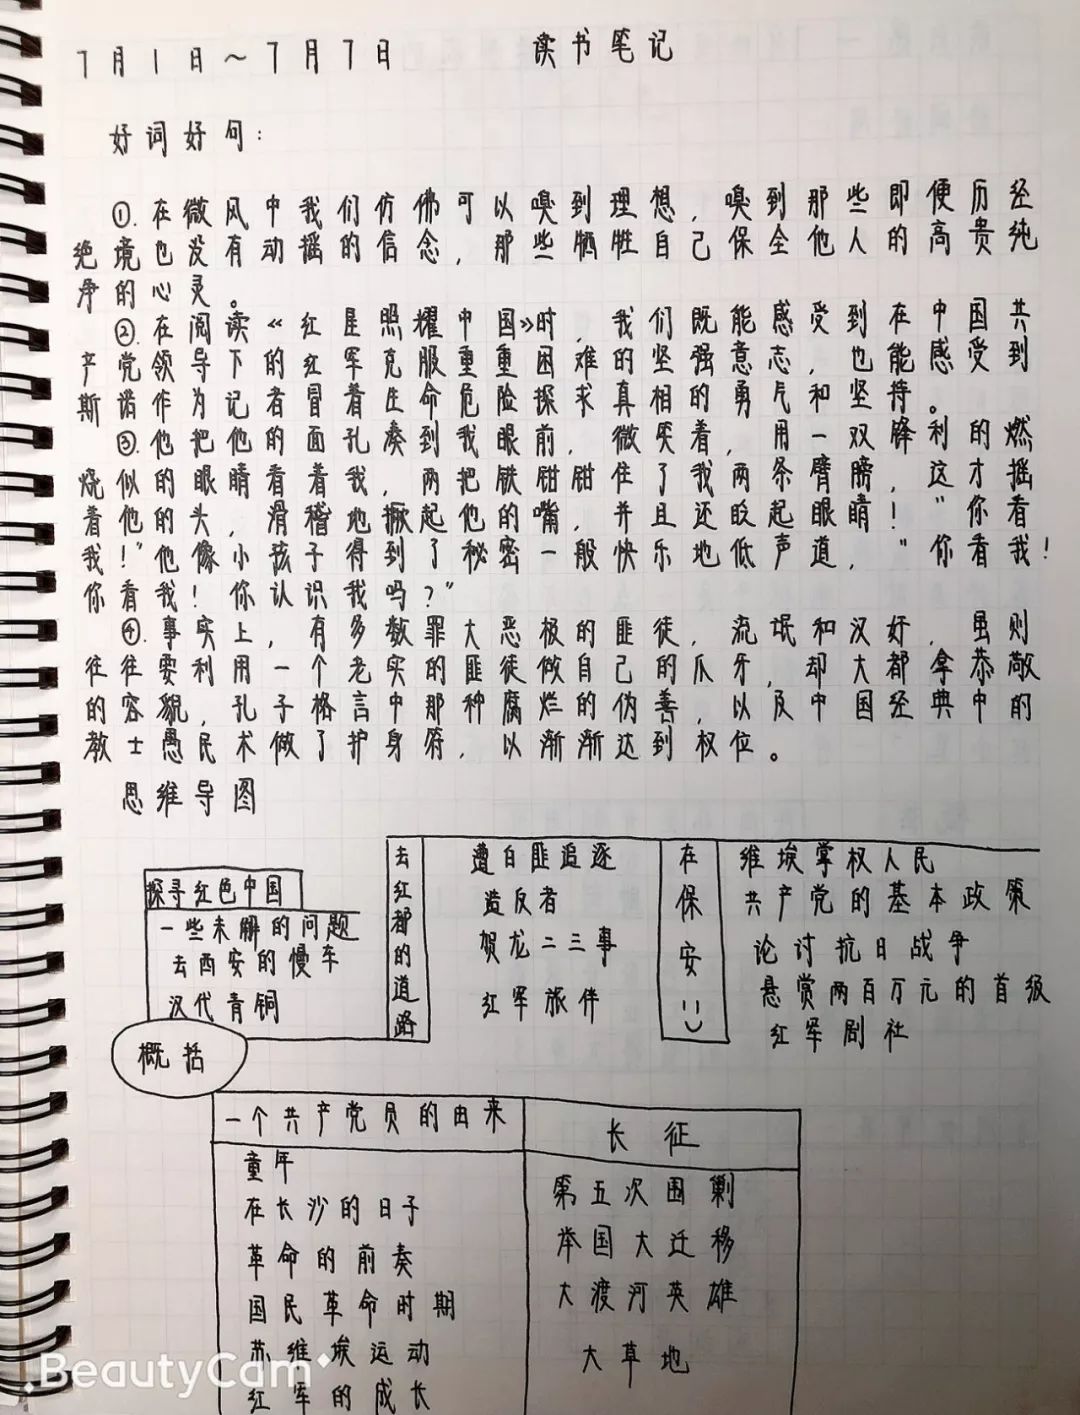 7月1日～7月7日 读书笔记
好词好句：
①.在微风中我们仿佛可以嗅到理想，嗅到那些即便历经
绝境也没有动摇的信念，那些牺牲自己保全他人的高贵纯
净的心灵。
②.在阅读《红星照耀中国》时，我们既能感受到在中国共
产党领导下的红军克服重重困难的坚强意志，也能感受到
斯诺作为记者冒着生命危险探求真相的勇气和坚持。
③.他把他的面孔凑到我眼前，微笑着，用一双锋利的燃
烧似的眼睛看着我，两把铁钳钳住了我两条臂膀，这才摇
着他的头，滑稽地撅起他的嘴，并且还眨起眼睛！“你看
我！”他像小孩子得到了秘密一般快乐地低声道，“你看我！
你看我！你认识我吗？”
④.事实上，有多数罪大恶极的匪徒，流氓和汉奸，虽则
往往要利用一个老实的匪徒做自己的爪牙，却大都拿恭敬
的容貌，孔子格言中那种腐烂的伪善，以及中国经典中的
教士愚民术做了护身符，以渐渐达到权位。
思维导图
探寻红色中国
一些未解的问题
去西安的慢车
汉代青铜
去红都的道路
遭白匪追逐
造反者
贺龙二三事
红军旅伴
在保安
维埃掌权人民
共产党的基本政策
论讨抗日战争
悬赏两百万元的首级
红军剧社
概括
一个共产党员的由来
童年
在长沙的日子
革命的前奏
国民革命时期
苏维埃运动
红军的成长
长征
第五次围剿
举国大迁移
大渡河英雄
大草地
BeautyCam